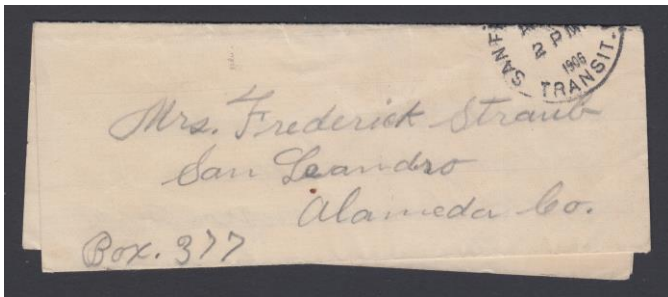 SAN F
2 PM
1906
TRANSIT.
Mrs. Frederick Straub
San Leandro
Alameda Co.
Box. 377